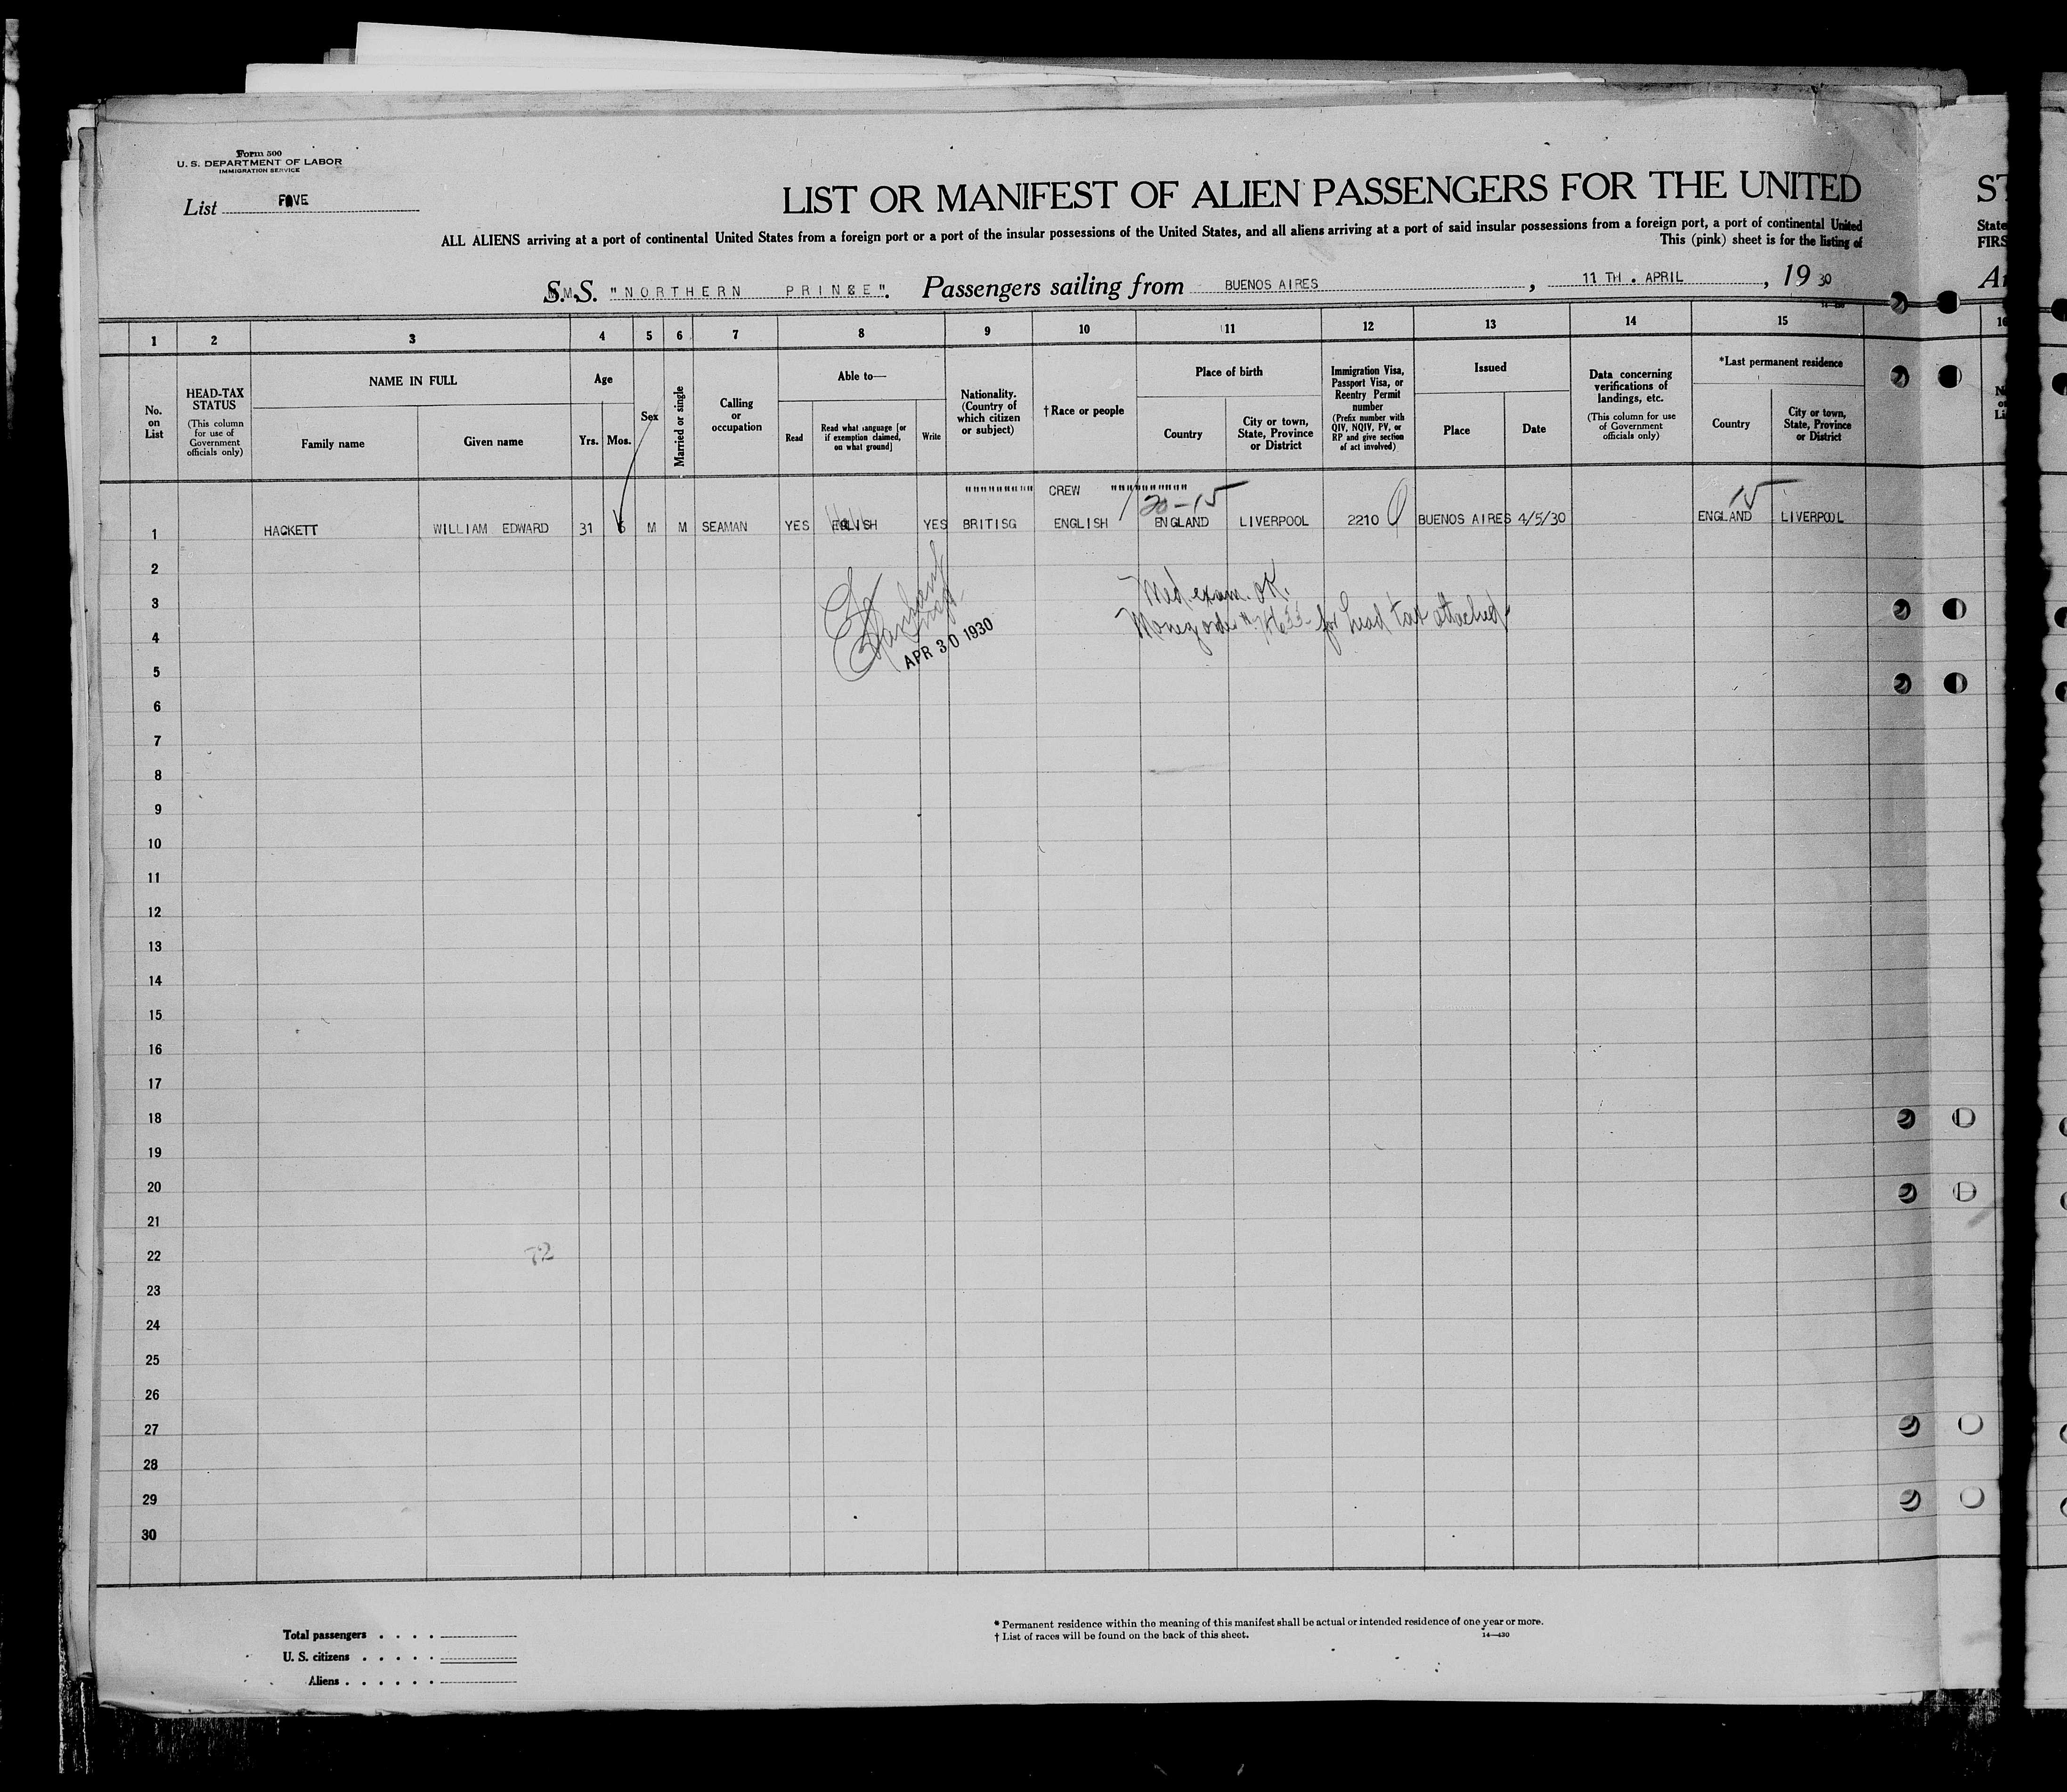 Form 500
U. S. DEPARTMENT OF LABOR
IMMIGRATION SERVICE
List FOVE
LIST OR MANIFEST OF ALIEN PASSENGERS FOR THE UNITED
ST
ALL ALIENS arriving at a port of continental United States from a foreign port or a port of the insular possessions of the United States, and all aliens arriving at a port of said insular possessions from a foreign port, a port of continental United
State
This (pink) sheet is for the listing of
FIRS
S. S. "NORTHERN PRINCE". Passengers sailing from BUENOS AIRES, 11 TH . APRIL, 19 30
1 2 3 4 5 6 7 8 9 10 11 12 13 14 15
No. on List
HEAD-TAX STATUS (This column for use of Government officials only)
NAME IN FULL
Family name
Given name
Age
Yrs. Mos.
Sex
Married or single
Calling or occupation
Able to—
Read
Read what language [or if exemption claimed, on what ground]
Write
Nationality. (Country of which citizen or subject)
† Race or people
Place of birth
Country
City or town, State, Province or District
Immigration Visa, Passport Visa, or Reentry Permit number (Prefix number with QIV, NQIV, PV, or RP and give section of act involved)
Issued
Place
Date
Data concerning verifications of landings, etc. (This column for use of Government officials only)
*Last permanent residence
Country
City or town, State, Province or District
""""""""" CREW """"""""""
20-15
15
1 HACKETT WILLIAM EDWARD 31 6 M M SEAMAN YES YES BRITISG ENGLISH ENGLAND LIVERPOOL 2210 BUENOS AIRES 4/5/30 ENGLAND LIVERPOOL
2
Med. exam. OK.
3
for head tax attached
4
APR 30 1930
5
6
7
8
9
10
11
12
13
14
15
16
17
18
19
20
21
22
72
23
24
25
26
27
28
29
30
Total passengers . . . .
U. S. citizens . . . . .
Aliens . . . . . .
* Permanent residence within the meaning of this manifest shall be actual or intended residence of one year or more.
† List of races will be found on the back of this sheet.
14—430